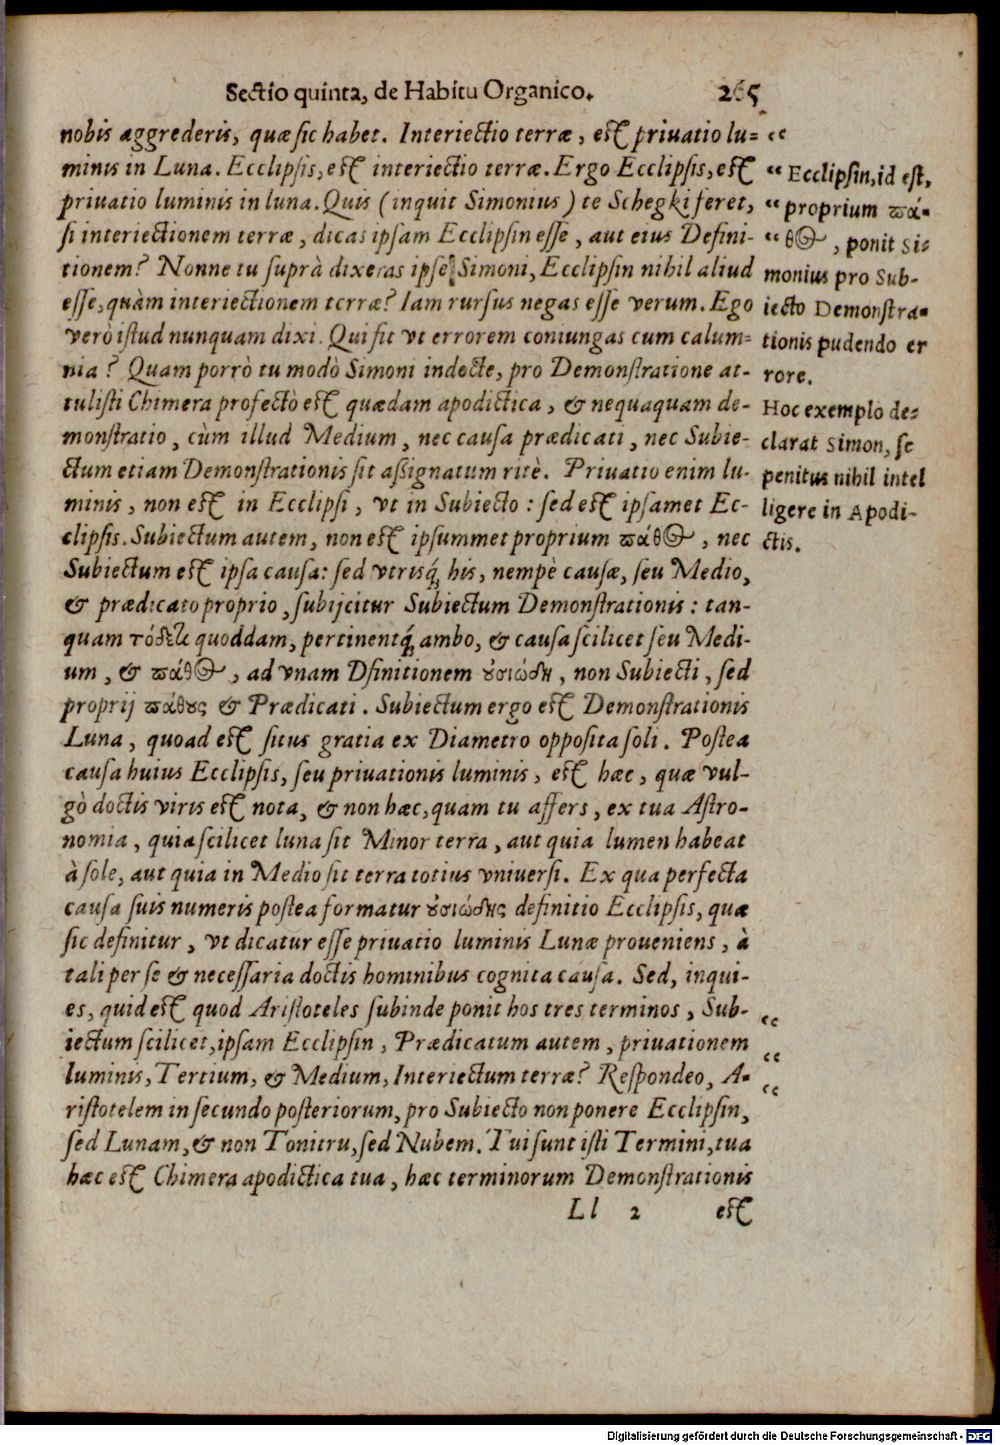 Sectio quinta, de Habitu Organico. 265
nobis aggrederis, quæ sic habet. Interiectio terræ, est priuatio lu= “
minis in Luna. Ecclipsis, est interiectio terræ. Ergo Ecclipsis, est “
priuatio luminis in luna. Quis (inquit Simonius) te Schegki feret, “
si interiectionem terræ, dicas ipsam Ecclipsin esse, aut eius Defini- “
tionem? Nonne tu suprà dixeras ipse Simoni, Ecclipsin nihil aliud
esse, quàm interiectionem terræ? Iam rursus negas esse verum. Ego
verò istud nunquam dixi. Qui fit vt errorem coniungas cum calum=
nia? Quam porrò tu modò Simoni indocte, pro Demonstratione at-
tulisti Chimera profectò est quædam apodictica, & nequaquam de-
monstratio, cùm illud Medium, nec causa prædicati, nec Subie-
ctum etiam Demonstrationis sit aßignatum ritè. Priuatio enim lu-
minis, non est in Ecclipsi, vt in Subiecto: sed est ipsamet Ec-
clipsis. Subiectum autem, non est ipsummet proprium πάθος, nec
Subiectum est ipsa causa: sed vtrisq́; his, nempè causæ, seu Medio,
& prædicato proprio, subijcitur Subiectum Demonstrationis: tan-
quam τόδε τι quoddam, pertinentq́; ambo, & causa scilicet seu Medi-
um, & πάθος, ad vnam Dfinitionem οὐσιώδη, non Subiecti, sed
proprij πάθους & Prædicati. Subiectum ergo est Demonstrationis
Luna, quoad est situs gratia ex Diametro opposita soli. Postea
causa huius Ecclipsis, seu priuationis luminis, est hæc, quæ vul-
gò doctis viris est nota, & non hæc, quam tu affers, ex tua Astro-
nomia, quia scilicet luna sit Minor terra, aut quia lumen habeat
à sole, aut quia in Medio sit terra totius vniuersi. Ex qua perfecta
causa suis numeris postea formatur οὐσιώδης definitio Ecclipsis, quæ
sic definitur, vt dicatur esse priuatio luminis Lunæ proueniens, à
tali per se & necessaria doctis hominibus cognita causa. Sed, inqui-
es, quid est quod Aristoteles subinde ponit hos tres terminos, Sub- “
iectum scilicet, ipsam Ecclipsin, Prædicatum autem, priuationem “
luminis, Tertium, & Medium, Interiectum terræ? Respondeo, A- “
ristotelem in secundo posteriorum, pro Subiecto non ponere Ecclipsin,
sed Lunam, & non Tonitru, sed Nubem. Tui sunt isti Termini, tua
hæc est Chimera apodictica tua, hæc terminorum Demonstrationis
Ll 2 est
Ecclipsin, id est,
proprium πά-
θος, ponit Si=
monius pro Sub-
iecto Demonstra-
tionis pudendo er
rore.
Hoc exemplo de=
clarat Simon, se
penitus nihil intel
ligere in Apodi-
ctis.
Digitalisierung gefördert durch die Deutsche Forschungsgemeinschaft - DFG